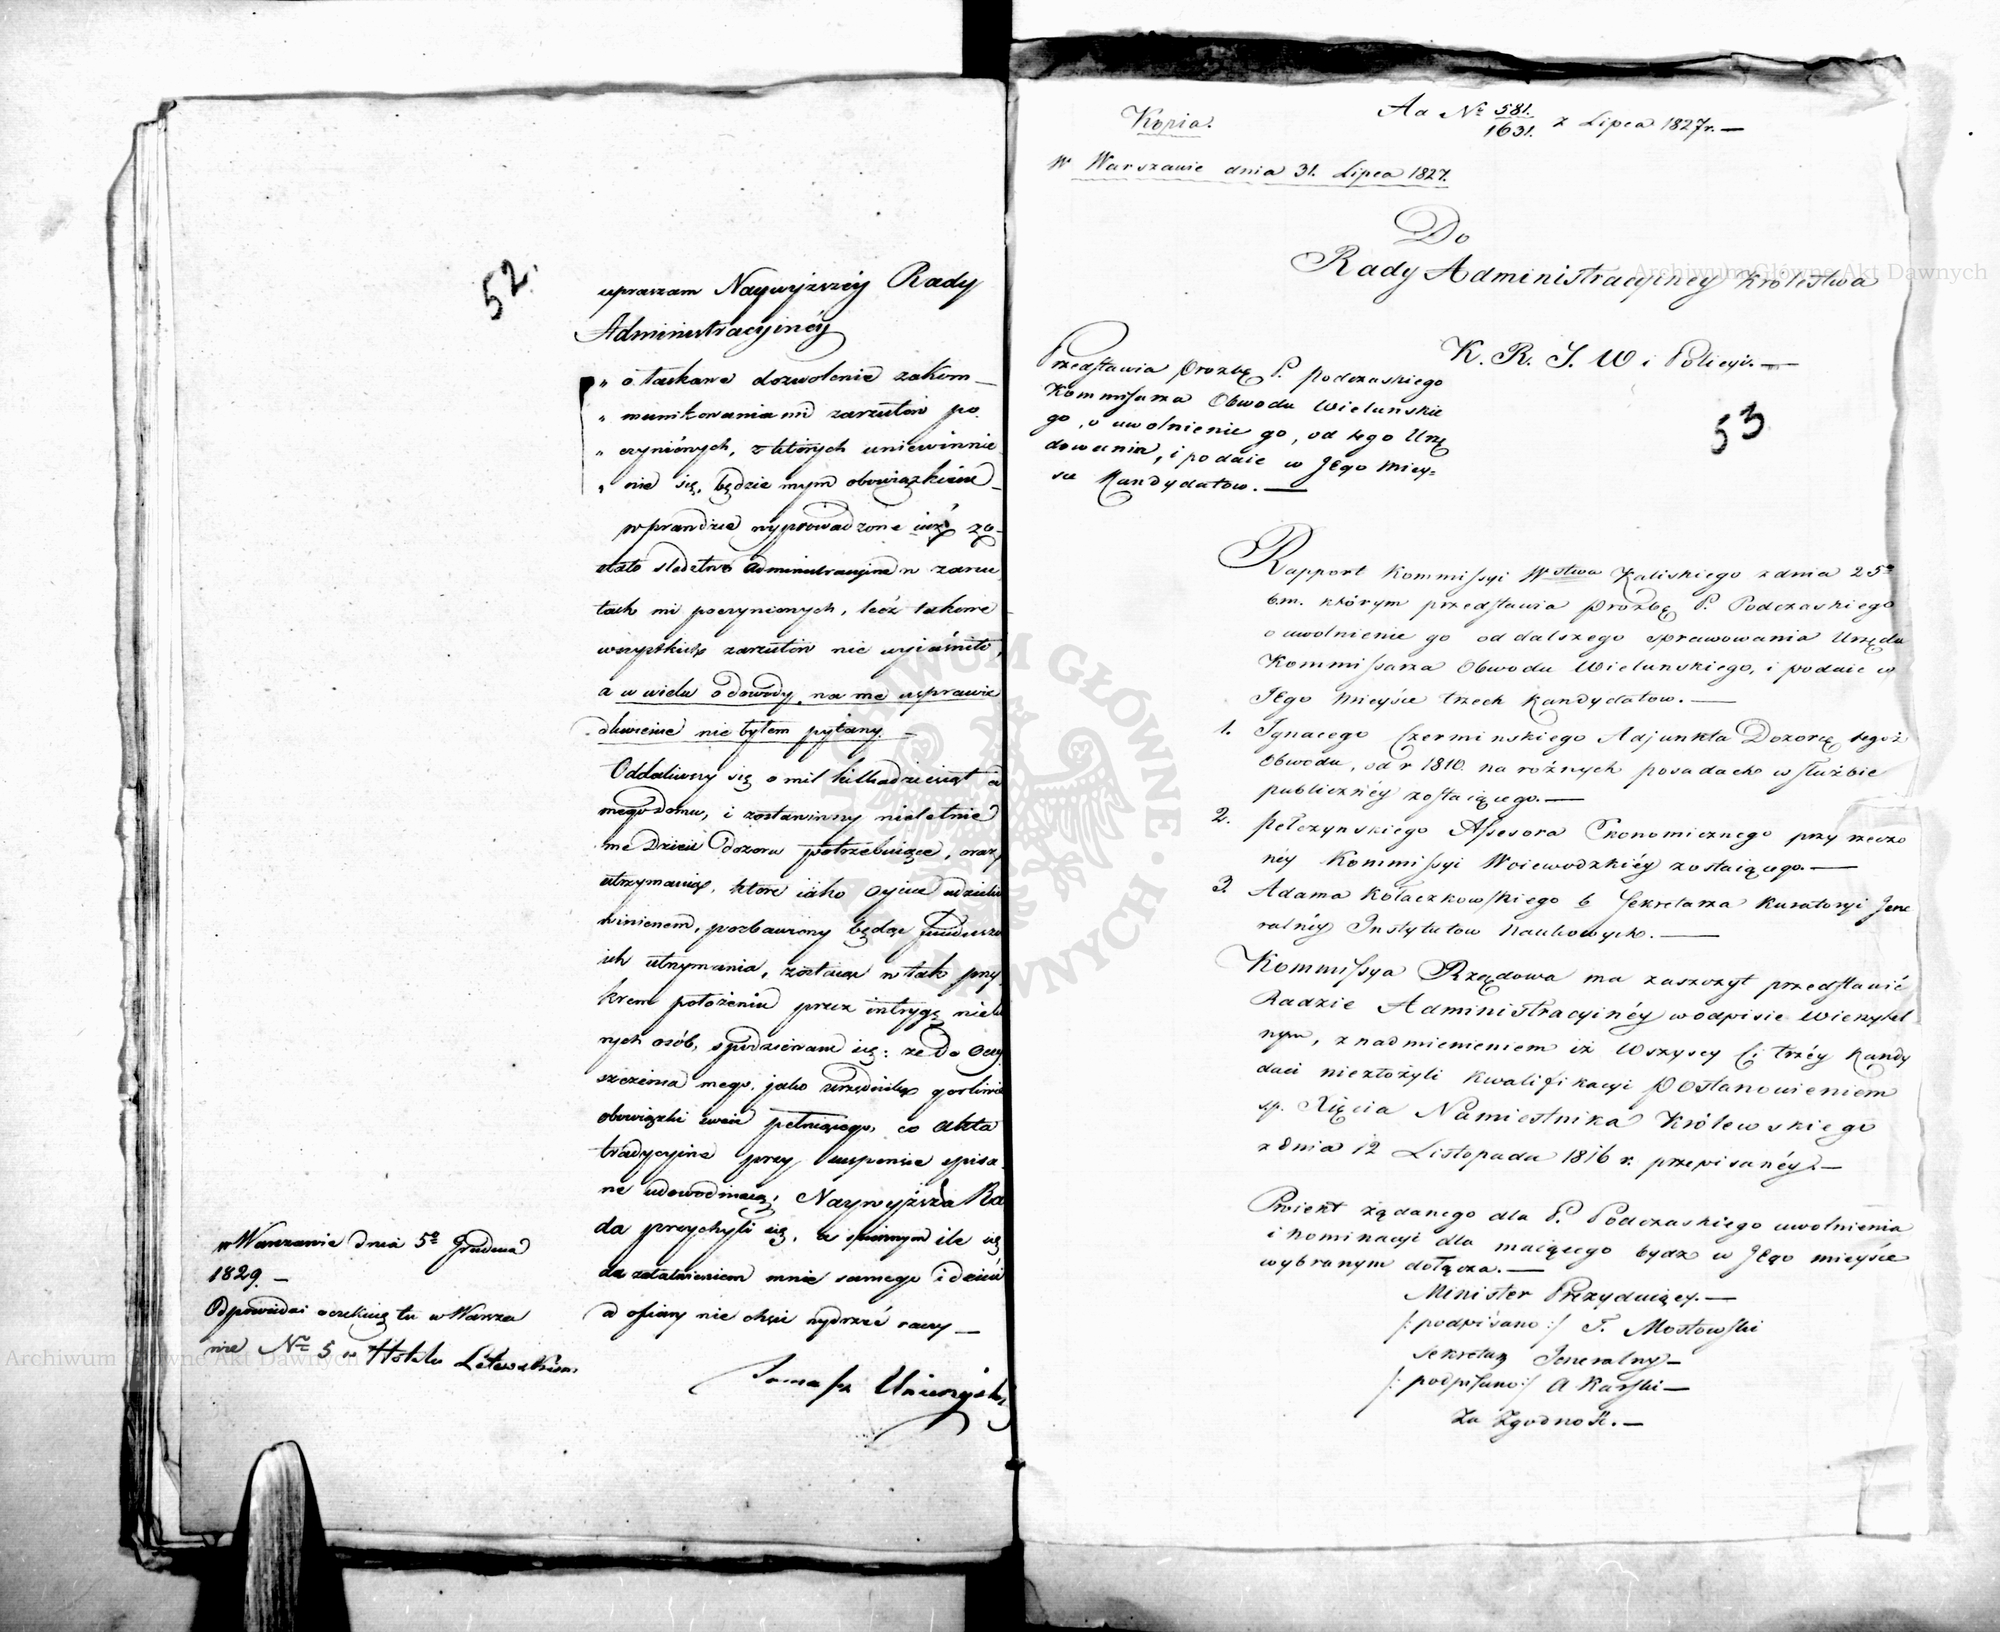 52.
upraszam Naywyższéy Rady
Administracyinéy
„ o łaskawe dozwolenie zakom_
„ munikowania mi zarzutów po
„ czynionych, z których uniewinnie
„ nie się, będzie mym obowiązkiem_
wprawdzie wyprowadzone iuż zo_
stało śledztwo administracyine w zarzu
tach mi poczynionych, lecz takowe
wszystkich zarzutów nie wyiaśniło,
a w wielu o dowody na me usprawie
dliwienie nie byłem pytany. _
Oddaliwszy się o mil kilkadziesiąt od
mego domu, i zostawiwszy nieletnie
me Dzieci dozoru potrzebuiące, oraz
utrzymania, które iako Oyciec udzielić
winienem, pozbawiony będąc funduszu
ich utrzymania, zostaiąc w tak przy
krem położeniu przez intrygę niektó
rych osób, spodziewam się: że do Oczy
szczenia mego, jako urzędnika gorliwie
obowiązki swoie pełniącego, co akta
tradycyine przy suspensie spisa
ne udowodniaią; Naywyższa Ra
da przychyli się, a śpiesznym ile się
da załatwieniem mnie samego i dzieci
ofiary nie chcie wydrzeć raczy _
Tomasz
w Warszawie dnia 5º Grudnia
1829. _
Odpowiedzi oczekuię tu w Warsza
wie Nr 5 w Hotelu Litewskiem.
Kopia.
Ad Nr 581./1631. z Lipca 1827r. _
W Warszawie dnia 31. Lipca 1827.
Do
Rady Administracyiney Krolestwa
K. R. S. W i Policyi. _
53
Przedstawia Prozbę P. Podczaskiego
Kommissarza Obwodu Wielunskie
go, o uwolnienie go, od tego Urzę
dowania, i podaie w JEgo Miey=
sce Kandydatow. _
Rapport Kommissyi Wstwa Kaliskiego z dnia 25º
b.m. którym przedstawia Prozbę P. Podczaskiego
o uwolnienie go od dalszego sprawowania Urzędu
Kommissarza Obwodu Wielunskiego, i podaie w
JEgo Mieysce trzech Kandydatow. _
1. Ignacego Czerminskiego Adjunkta Dozorcę tegoż
Obwodu, od r 1810. na rożnych posadach w służbie
publicznéy zostaiącego. _
2. Pełczynskiego Assesora Ekonomicznego przy rzeczo
néy Kommissyi Woiewodzkiéy zostaiącego. _
3. Adama Kołaczkowskiego b Sekretarza Kuratoryi Jene
ralnéy Instytutow Naukowych. _
Kommissya Rządowa ma zaszczyt przedstawić
Radzie Administracyinéy w odpisie Wierzytel
nym, z nadmienieniem iż Wszyscy Ci trzéy Kandy
daci niezłożyli kwalifikacyi Postanowieniem
sp. Xięcia Namiestnika Królewskiego
z dnia 12 Listopada 1816 r. przepisanéy. _
Proiekt żądanego dla P. Podczaskiego uwolnienia
i nominacyi dla maiącego bydz w JEgo mieysce
wybranym dołącza. _
Minister Prezyduiący. _
/: podpisano :/ T. Mostowski
Sekretarz Jeneralny _
/: podpisano :/ A Karski _
Za Zgodność. _
Archiwum Główne Akt Dawnych
Archiwum Główne Akt Dawnych
ARCHIWUM GŁÓWNE AKT DAWNYCH